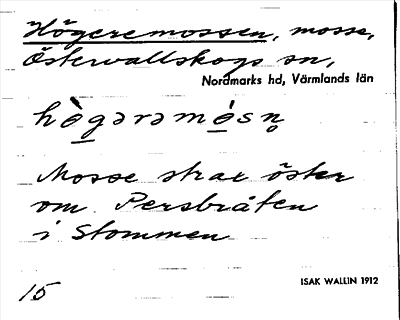 Högeremossen, mosse,
Östervallskogs sn,
Nordmarks hd, Värmlands län
hègərəmósn̥
Mosse strax öster
om Persbråten
i Stommen
ISAK WALLIN 1912
15